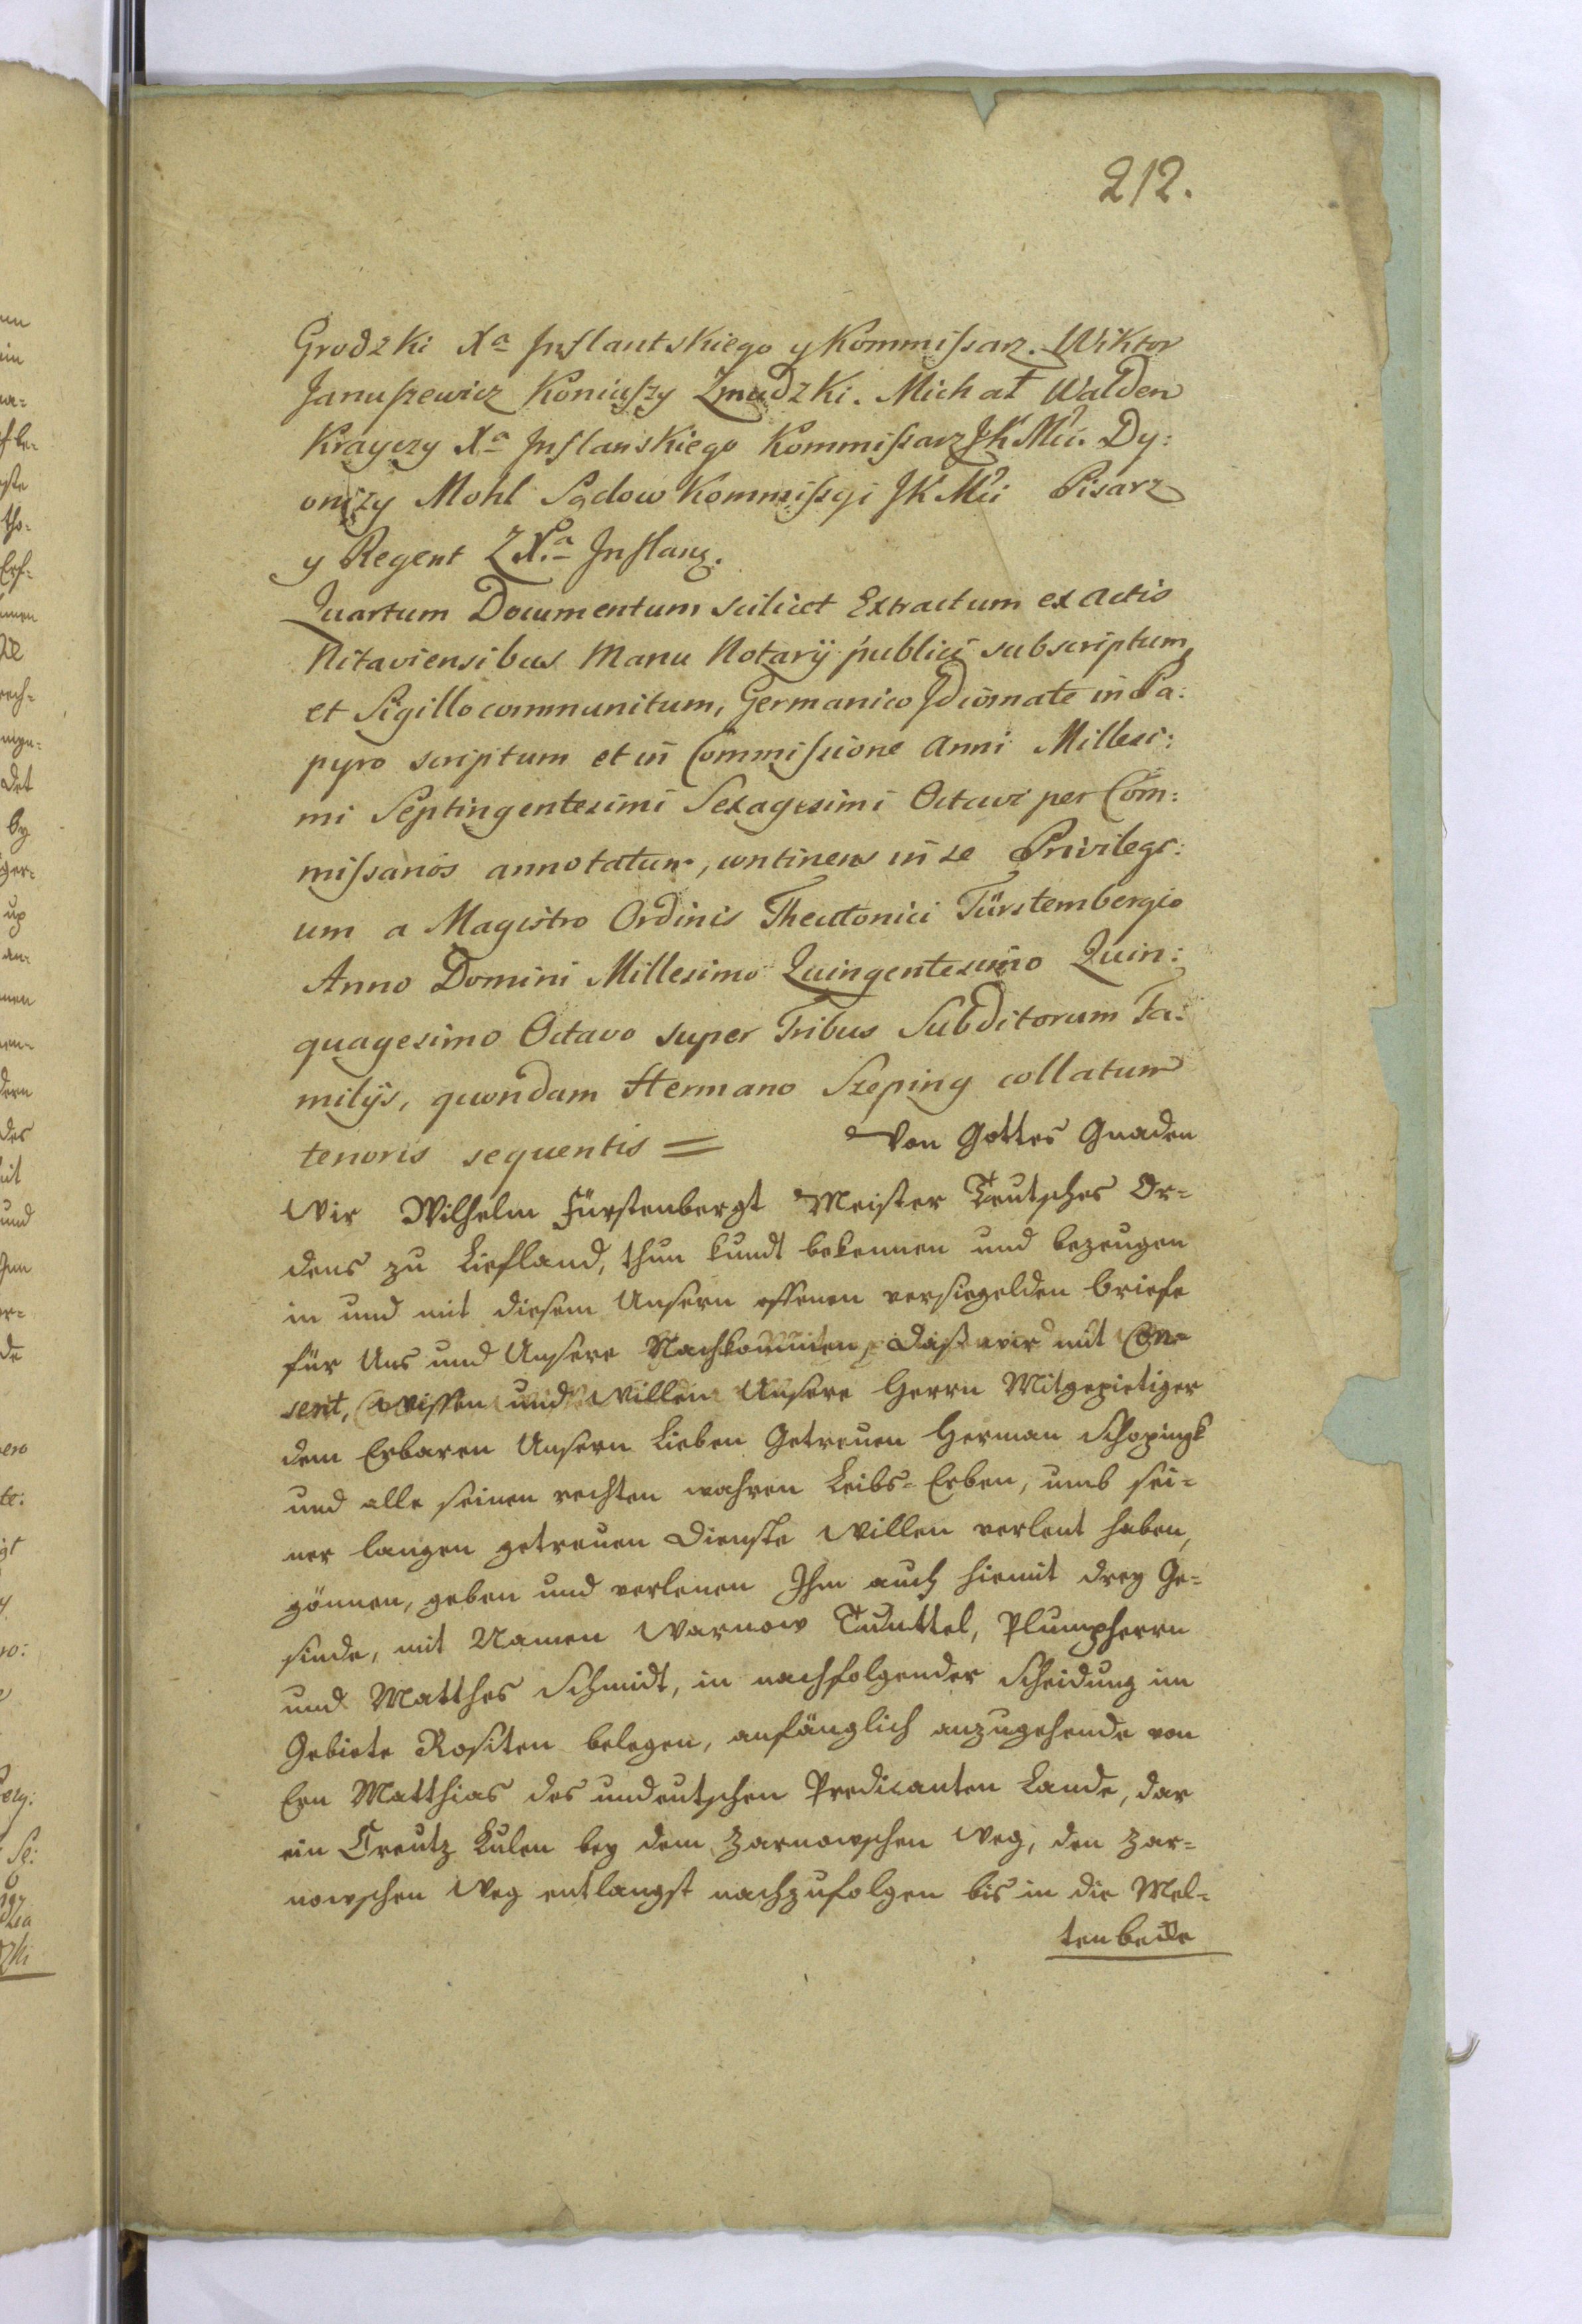 212.
Grodzki Xa Inflantskiego y Kommissarz. Wiktor
Januszewicz Koniuszy Zmudzki. Michał Walden
Krayczy Xa Inflanskiego Kommissarz JKMci. Dy:
onizy Mohl Sądow Kommissyi JKMci Pisarz
y Regent Z Xa Inflanz.
Quartum Documentum scilicet Extractum ex actis
Nitaviensibus Manu Notarÿ publici subscriptum
et Sigillo communitum, Germanico Idiomate in Pa:
pyro scriptum et in Commissione Anni Millesi:
mi Septingentesimi Sexagesimi Octavi per Com:
missarios annotatum, continens in se Privilegi:
um a Magistro Ordinis Theutonici Fürstembergio
Anno Domini Millesimo Quingentesimo Quin:
quagesimo Octavo super Tribus Subditorum Fa:
milÿs, quondam Hermano Szeping collatum
tenoris sequentis = Von Gottes Gnaden
Wir Wilhelm Fürstenbergt Meister Teutsches Or=
dens zu Liefland, thun kundt bekennen und bezeugen
in und mit diesem Unsern offenen versiegelden briefe
für Uns und Unsere Nachkommen, daß wir mit Con=
sent, Wissen und Willen Unsere Herrn Mitgepietiger
dem Erbaren Unsern Lieben Getreuen Herman Schopingk
und alle seinen rechten wahren Leibs-Erben, umb sei=
ner langen getreuen Dienste Willen verlent haben,
gönnen, geben und verlenen Ihm auch hiemit drey Ge=
sinde, mit Namen Warnow Tuuttel, Plumpherrn
und Matthes Schmidt, in nachfolgender Scheidung im
Gebiete Rositen belegen, anfänglich anzugehende von
Ern Matthias des undeutschen Predicanten Lande, dar
ein Creutz Kulen bey dem Zarnowschen Weg, den Zar=
nowschen Weg entlangst nachzufolgen bis in die Mel=
tenbecke